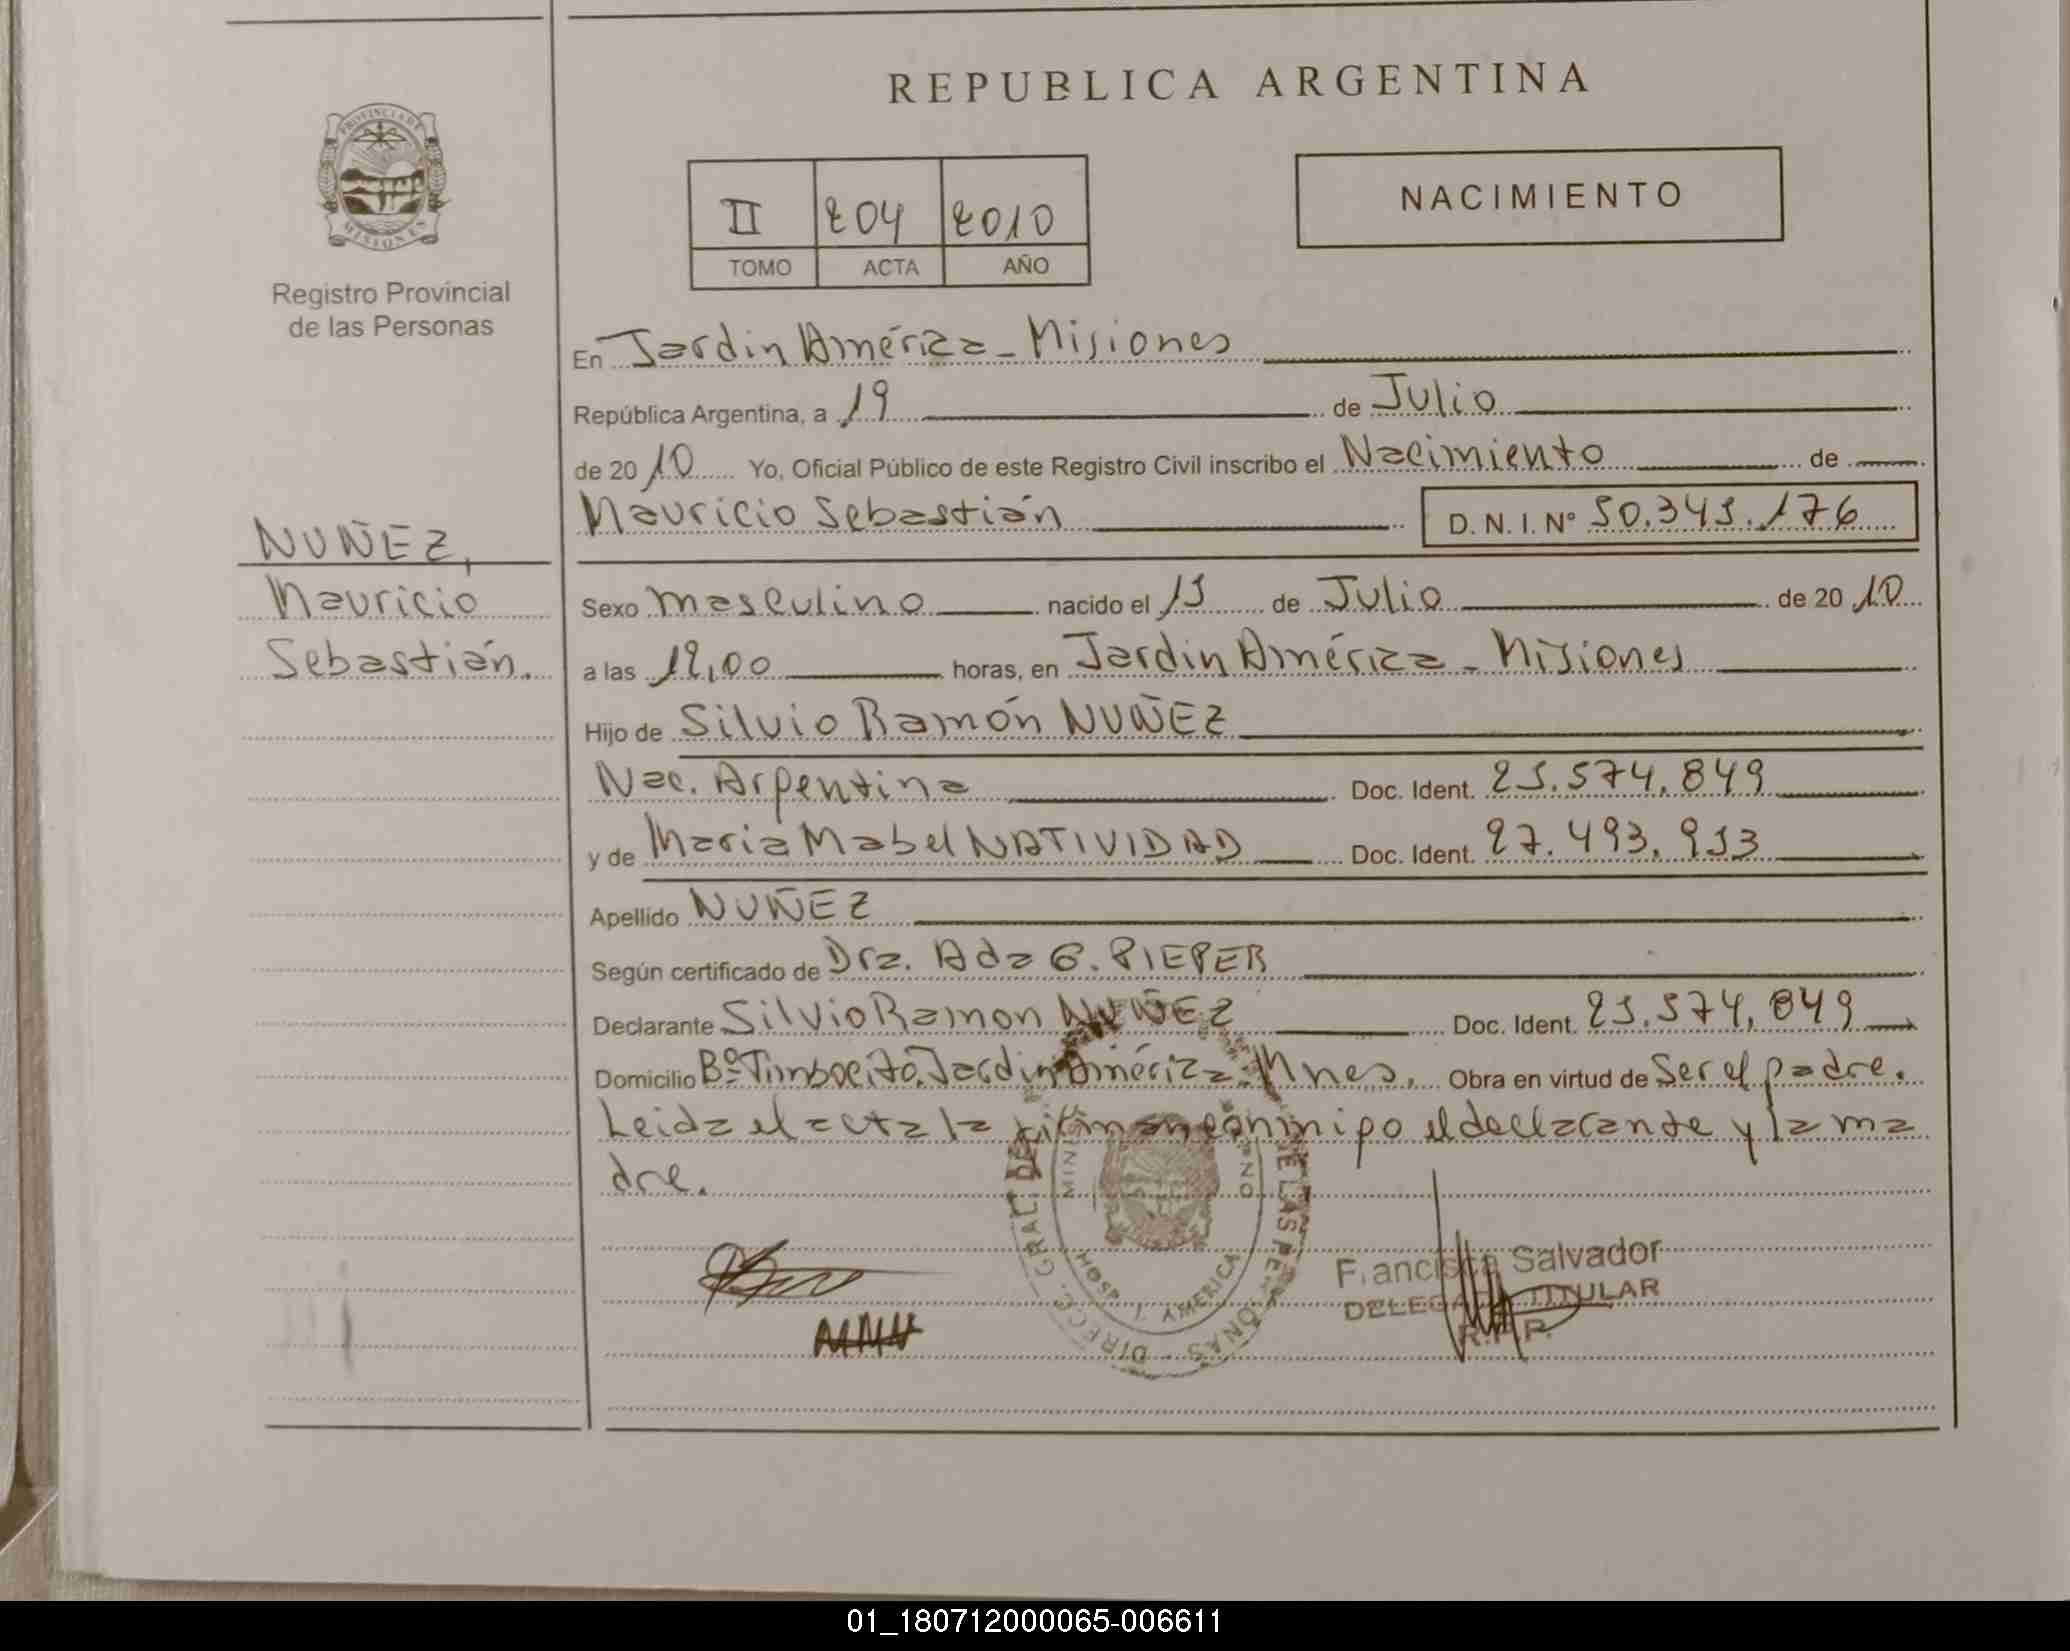 REPUBLICA ARGENTINA
PROVINCIA DE
MISIONES
Registro Provincial
de las Personas
II 204 2010
TOMO ACTA AÑO
NACIMIENTO
En Jardin América - Misiones
República Argentina, a 19 de Julio
de 2010 Yo, Oficial Público de este Registro Civil inscribo el Nacimiento de
Mauricio Sebastián D. N. I. Nº 50.345.176
NUÑEZ,
Mauricio
Sebastián.
Sexo masculino nacido el 15 de Julio de 2010
a las 12,00 horas, en Jardin América - Misiones
Hijo de Silvio Ramón NUÑEZ
Nac. Argentina Doc. Ident. 25.574.849
y de Maria Mabel NATIVIDAD Doc. Ident. 27.493.953
Apellido NUÑEZ
Según certificado de Dra. Ada G. PIEPER
Declarante Silvio Ramon NUÑEZ Doc. Ident. 25.574.849
Domicilio Bº Timbocito, Jardin América - Mnes. Obra en virtud de Ser el padre.
Leida el acta la firman conmigo el declarante y la ma
dre.
DIREC. GRAL. DE LAS PERSONAS
HOSP. J. AMERICA
Francisca Salvador
DELEGADA TITULAR
R.P.P.
01_180712000065-006611